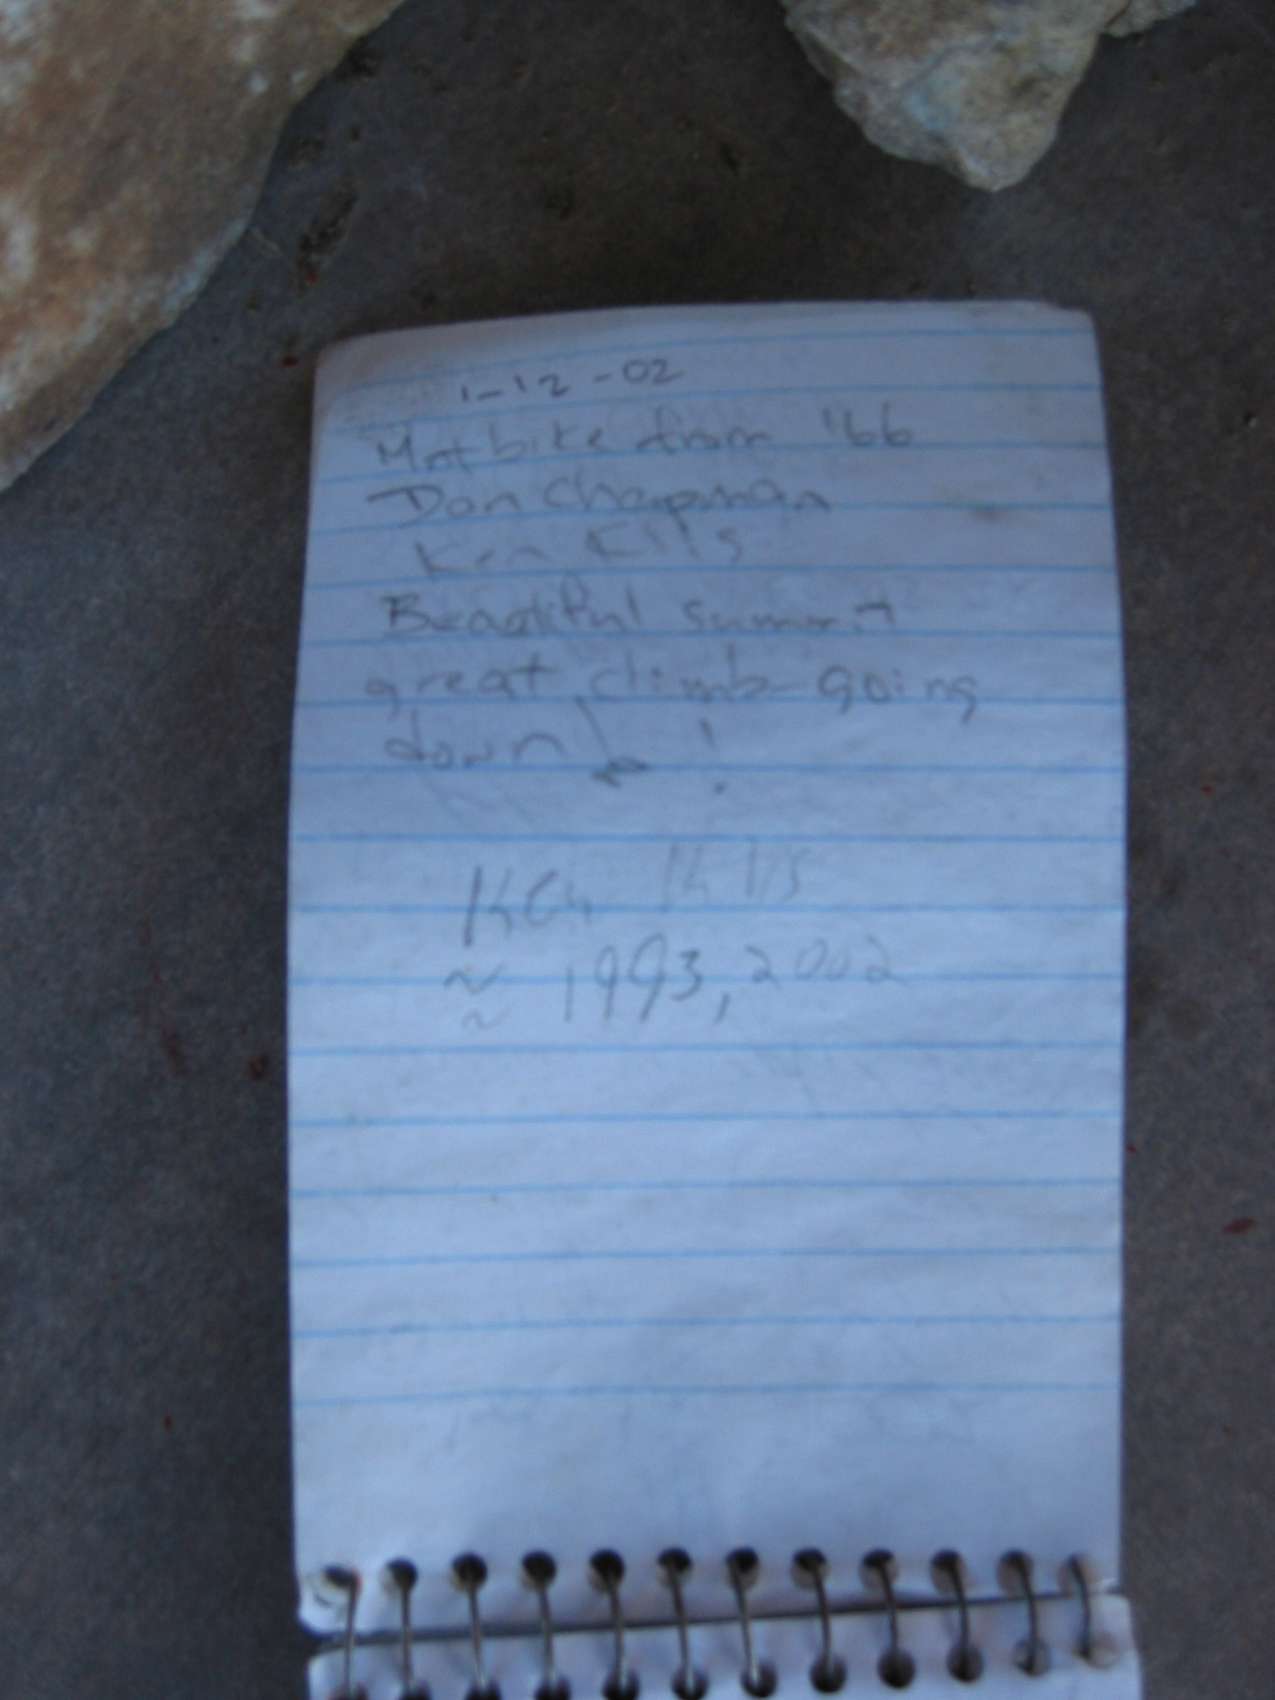 1-12-02
Mntbike from '66
Dan Chapman
Ken Klis
Beautiful summit
great climb-going
down!
Ken Klis
≈ 1993, 2002